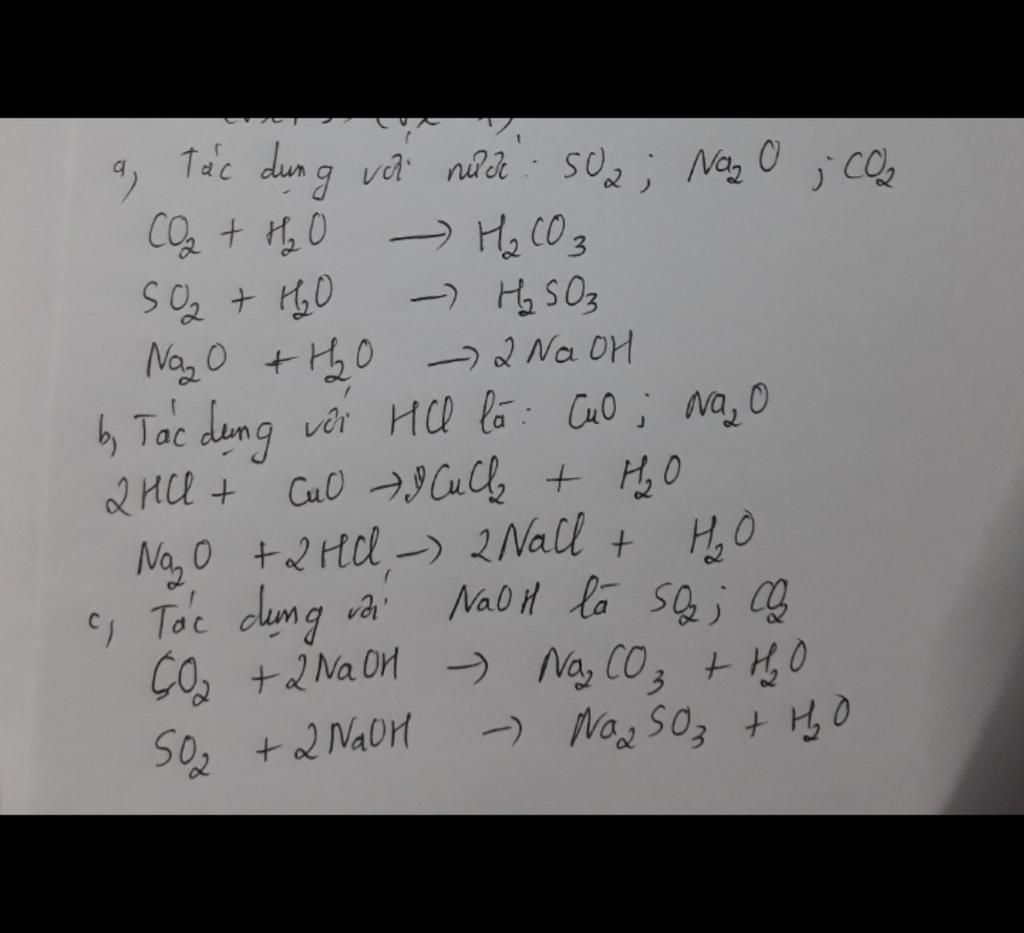 a, Tác dụng với nước: SO₂; Na₂O; CO₂
CO₂ + H₂O → H₂CO₃
SO₂ + H₂O → H₂SO₃
Na₂O + H₂O → 2NaOH
b, Tác dụng với HCl là: CuO; Na₂O
2HCl + CuO → CuCl₂ + H₂O
Na₂O + 2HCl → 2NaCl + H₂O
c, Tác dụng với NaOH là SO₂; CO₂
CO₂ + 2NaOH → Na₂CO₃ + H₂O
SO₂ + 2NaOH → Na₂SO₃ + H₂O